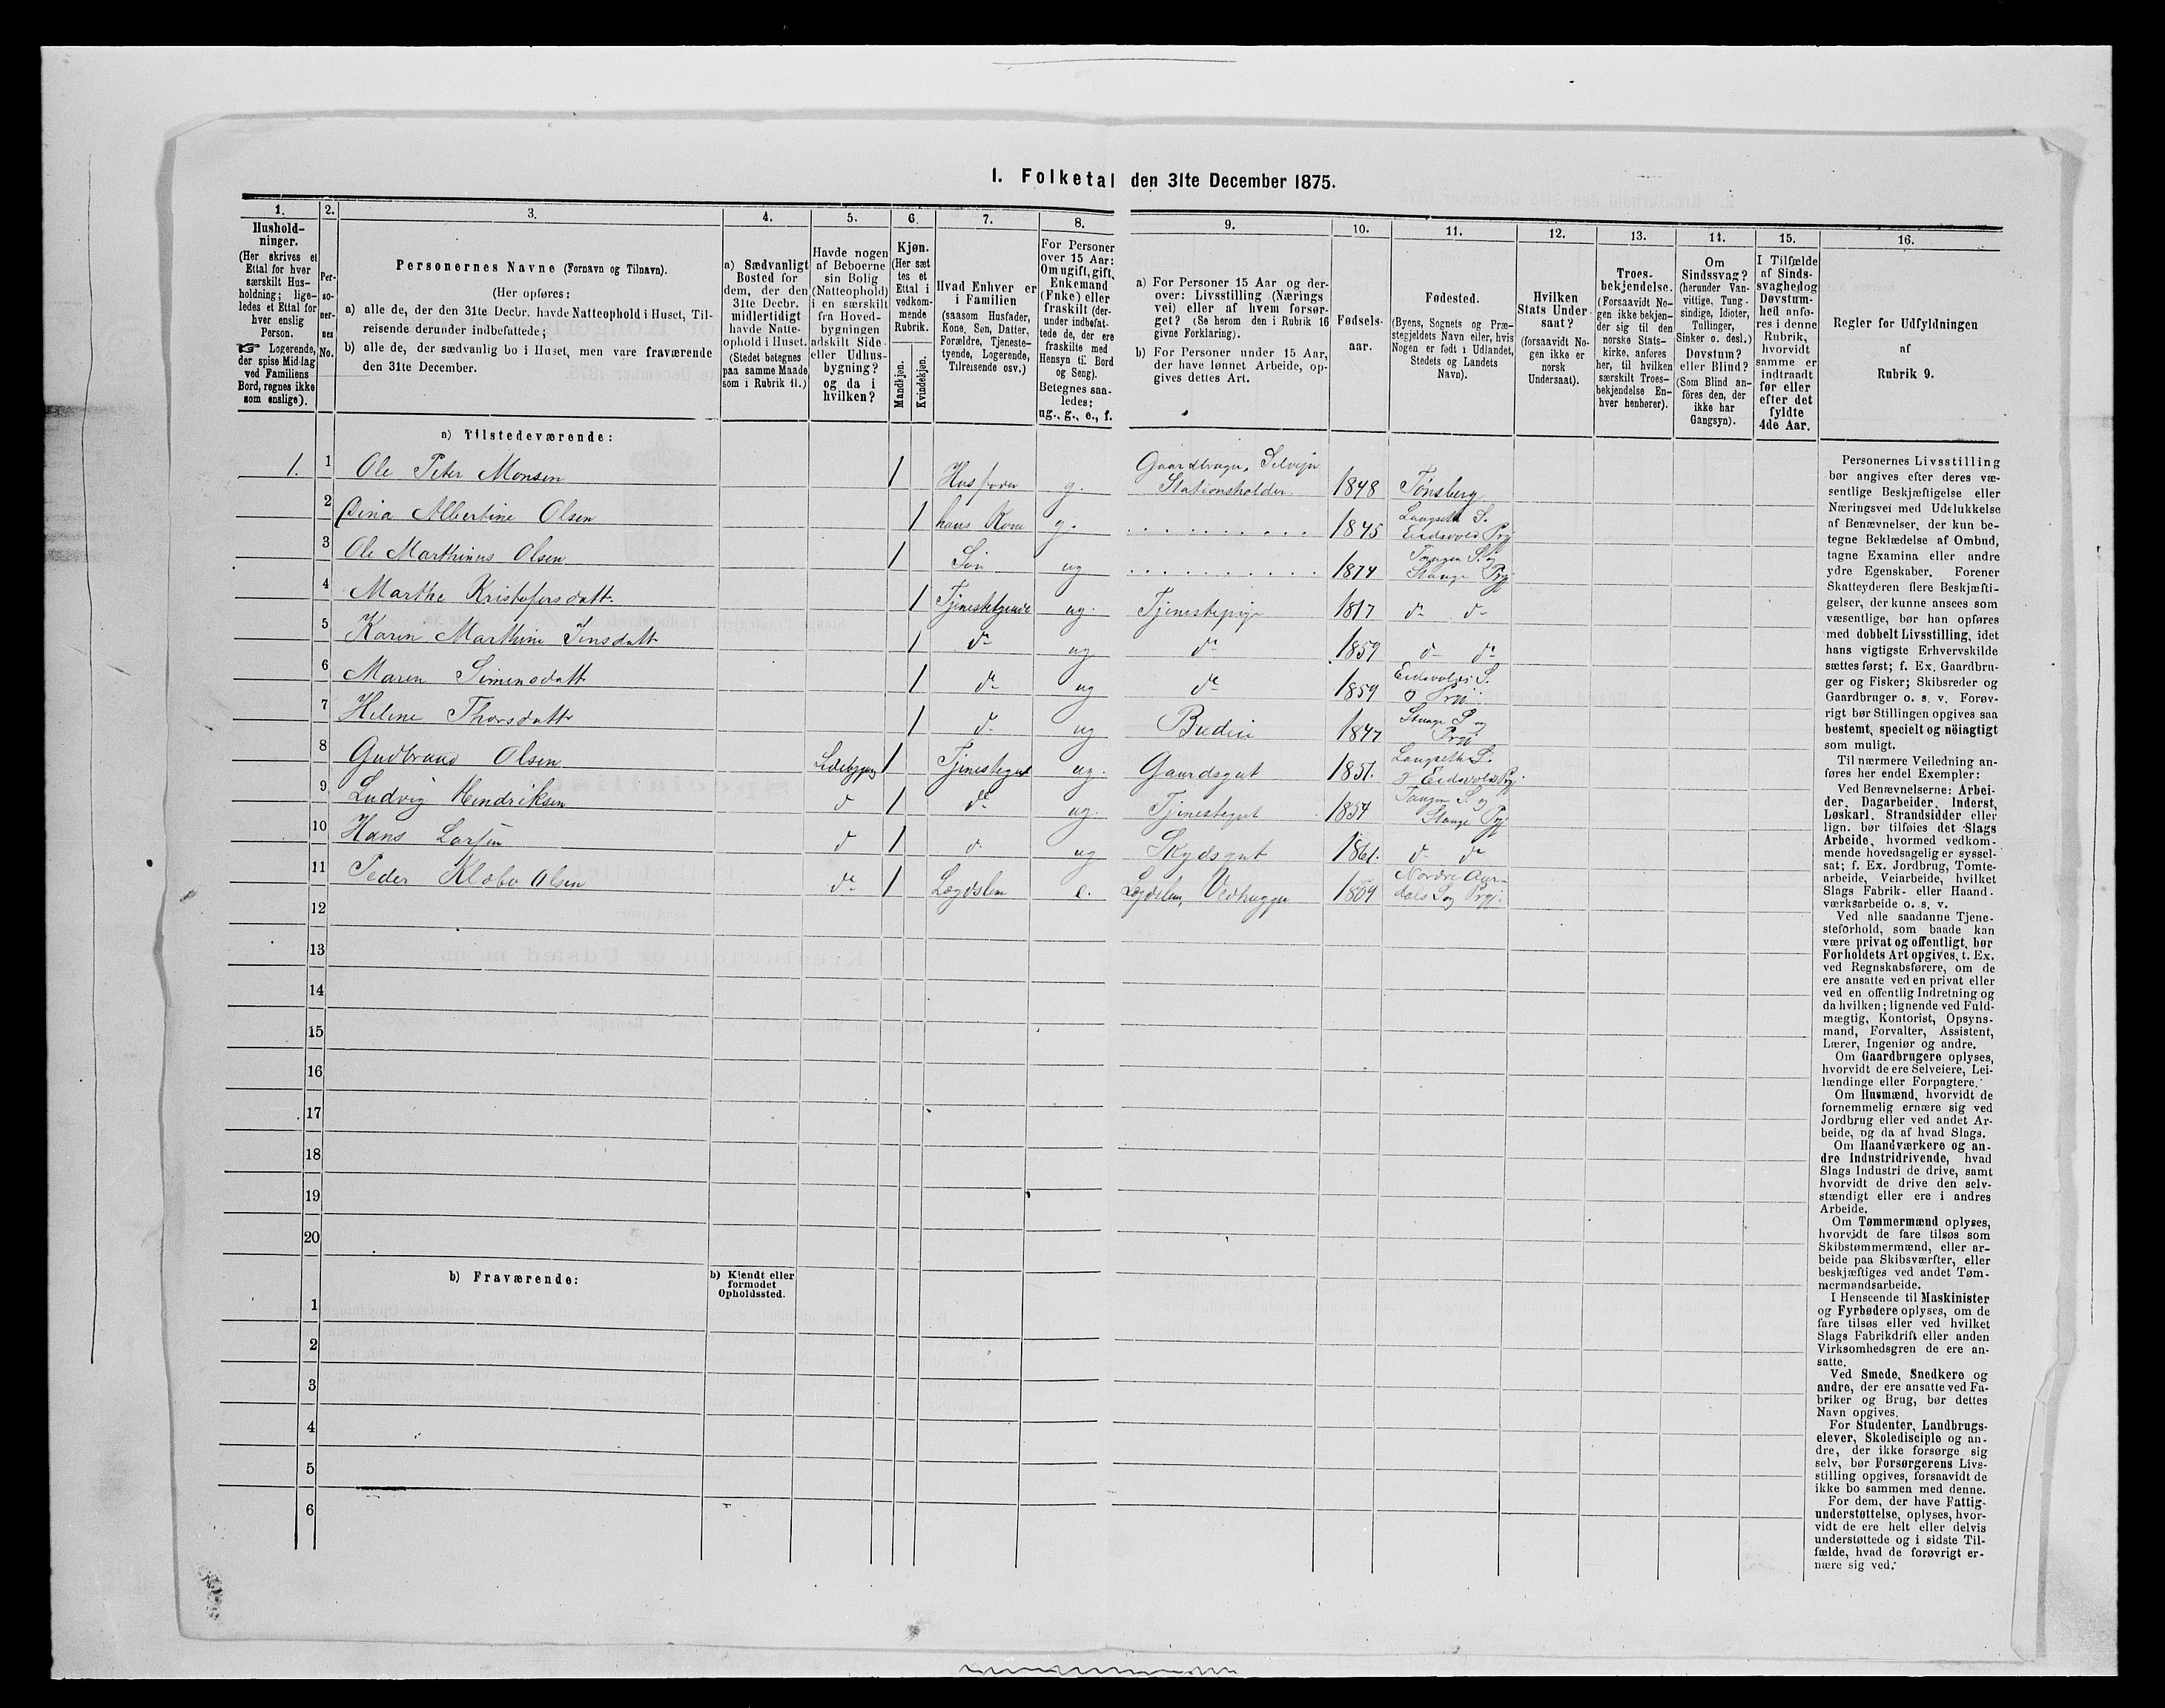 1. Folketal den 31te December 1875.
1.
Hushold-
ninger.
(Her skrives et
Ettal for hver
særskilt Hus-
holdning; lige-
ledes et Ettal for
hver enslig
Person.
☞ Logerende,
der spise Middag
ved Familiens
Bord, regnes ikke
som enslige).
2.
Per-
so-
ner-
nes
No.
3.
Personernes Navne (Fornavn og Tilnavn).
(Her opføres:
a) alle de, der den 31te Decbr. havde Natteophold i Huset, Til-
reisende derunder indbefattede;
b) alle de, der sædvanlig bo i Huset, men vare fraværende
den 31te December.
4.
a) Sædvanligt
Bosted for
dem, der den
31te Decbr.
midlertidigt
havde Natte-
ophold i Huset.
(Stedet betegnes
paa samme Maade
som i Rubrik 11.)
5.
Havde nogen
af Beboerne
sin Bolig
(Natteophold)
i en særskilt
fra Hoved-
bygningen
adskilt Side-
eller Udhus-
bygning?
og da i
hvilken?
6.
Kjøn.
(Her sæt-
tes et
Ettal i
vedkom-
mende
Rubrik.
Mandkjøn.
Kvindekjøn.
7.
Hvad Enhver er
i Familien
(saasom Husfader,
Kone, Søn, Datter,
Forældre, Tjeneste-
tyende, Logerende,
Tilreisende osv.)
8.
For Personer
over 15 Aar:
Om ugift, gift,
Enkemand
(Enke) eller
fraskilt (der-
under indbefat-
tede de, der ere
fraskilte med
Hensyn til Bord
og Seng).
Betegnes saa-
ledes:
ug., g., e., f.
9.
a) For Personer 15 Aar og der-
over: Livsstilling (Nærings
vei) eller af hvem forsør-
get? (Se herom den i Rubrik 16
givne Forklaring).
b) For Personer under 15 Aar,
der have lønnet Arbeide, op-
gives dettes Art.
10.
Fødsels-
aar.
11.
Fødested.
(Byens, Sognets og Præ-
stegjeldets Navn eller, hvis
Nogen er født i Udlandet,
Stedets og Landets
Navn).
12.
Hvilken
Stats Under-
saat?
(forsaavidt No-
gen ikke er
norsk
Undersaat).
13.
Troes-
bekjendelse.
(Forsaavidt No-
gen ikke bekjen-
der sig til den
norske Stats-
kirke, anføres
her, til hvilken
særskilt Troes-
bekjendelse En-
hver henhører).
14.
Om
Sindssvag?
(herunder Van-
vittige, Tung-
sindige, Idioter,
Tullinger,
Sinker o. desl.)
Døvstum?
eller Blind?
(Som Blind an-
føres den, der
ikke har
Gangsyn).
15.
I Tilfælde
af Sinds-
svaghed og
Døvstum-
hed anfø-
res i denne
Rubrik,
hvorvidt
samme er
indtraadt
før eller
efter det
fyldte
4de Aar.
16.
Regler for Udfyldningen
af
Rubrik 9.
a) Tilstedeværende:
1. 1 Ole Peter Monsen 1 Husfader g. Gaardbruger, Selveier Stationsholder. 1848 Tønsberg
2 Dina Albertine Olsen 1 hans Kone g. . . . . . . . . . . 1845 Langseth S. Eidsvold Prgj
3 Ole Marthinus Olsen 1 Søn ug . . . . . . . . . . 1874 Tangen S. og Stange Prgj
4 Marthe Kristofersdatt. 1 Tjenestetyende ug. Tjenestepige 1817 do do
5 Karen Marthine Jensdatt 1 do ug do 1859 do do
6 Maren Simensdatt 1 do ug do 1859 Eidsvolds S. og Prgj
7 Helene Thorsdatt 1 do ug Budeie 1847 Stange S og Prgj
8 Gudbrand Olsen Sidebygng 1 Tjenestegut ug. Gaardsgut 1851. Langseth S. og Eidsvolds Prgj.
9 Ludvig Hendriksen do 1 do ug. Tjenestegut 1854 Tangen S. og Stange Prgj
10 Hans Larsen do 1 do ug Skydsgut 1861. do do
11 Peder Klæbo Olsen do 1 Lægdslem e. Lægdslem, Vedhugger 1809 Nordre Aur-
dals S og Prgj.
12
13
14
15
16
17
18
19
20
b) Fraværende:
b) Kjendt eller
formodet
Opholdssted.
1
2
3
4
5
6
Personernes Livsstilling
bør angives efter deres væ-
sentlige Beskjæftigelse eller
Næringsvei med Udelukkelse
af Benævnelser, der kun be-
tegne Beklædelse af Ombud,
tagne Examina eller andre
ydre Egenskaber. Forener
Skatteyderen flere Beskjæfti-
gelser, der kunne ansees som
væsentlige, bør han opføres
med dobbelt Livsstilling, idet
hans vigtigste Erhvervskilde
sættes først; f. Ex. Gaardbru-
ger og Fisker; Skibsreder og
Gaardbruger o. s. v. Forøv-
rigt bør Stillingen opgives saa
bestemt, specielt og nöiagtigt
som muligt.
Til nærmere Veiledning an-
føres her endel Exempler:
Ved Benævnelserne: Arbei-
der, Dagarbeider, Inderst,
Løskarl, Strandsidder eller
lign. bør tilføies det Slags
Arbeide, hvormed vedkom-
mende hovedsagelig er syssel-
sat; f. Ex. Jordbrug, Tomte-
arbeide, Veiarbeide, hvilket
Slags Fabrik- eller Haand-
værksarbeide o. s. v.
Ved alle saadanne Tjene-
steforhold, som baade kan
være privat og offentligt, bør
Forholdets Art opgives, t. Ex.
ved Regnskabsførere, om de
ere ansatte ved en privat eller
ved en offentlig Indretning og
da hvilken; lignende ved Fuld-
mægtig, Kontorist, Opsyns-
mand, Forvalter, Assistent,
Lærer, Ingeniør og andre.
Om Gaardbrugere oplyses,
hvorvidt de ere Selveiere, Lei-
lændinge eller Forpagtere.
Om Husmænd, hvorvidt de
fornemmelig ernære sig ved
Jordbrug eller ved andet Ar-
beide, og da af hvad Slags.
Om Haandværkere og an-
dre Industridrivende, hvad
Slags Industri de drive, samt
hvorvidt de drive den selv-
stændigt eller ere i andres
Arbeide.
Om Tømmermænd oplyses,
hvorvidt de fare tilsøs som
Skibstømmermænd, eller ar-
beide paa Skibsværfter, eller
beskjæftiges ved andet Tøm-
mermandsarbeide.
I Henseende til Maskinister
og Fyrbødere oplyses, om de
fare tilsøs eller ved hvilket
Slags Fabrikdrift eller anden
Virksomhedsgren de ere an-
satte.
Ved Smede, Snedkere og
andre, der ere ansatte ved Fa-
briker og Brug, bør dettes
Navn opgives.
For Studenter, Landbrugs-
elever, Skoledisciple og an-
dre, der ikke forsørge sig
selv, bør Forsørgerens Livs-
stilling opgives, forsaavidt de
ikke bo sammen med denne.
For dem, der have Fattig-
understøttelse, oplyses, hvor-
vidt de ere helt eller delvis
understøttede og i sidste Til-
fælde, hvad de forøvrigt er-
nære sig ved.